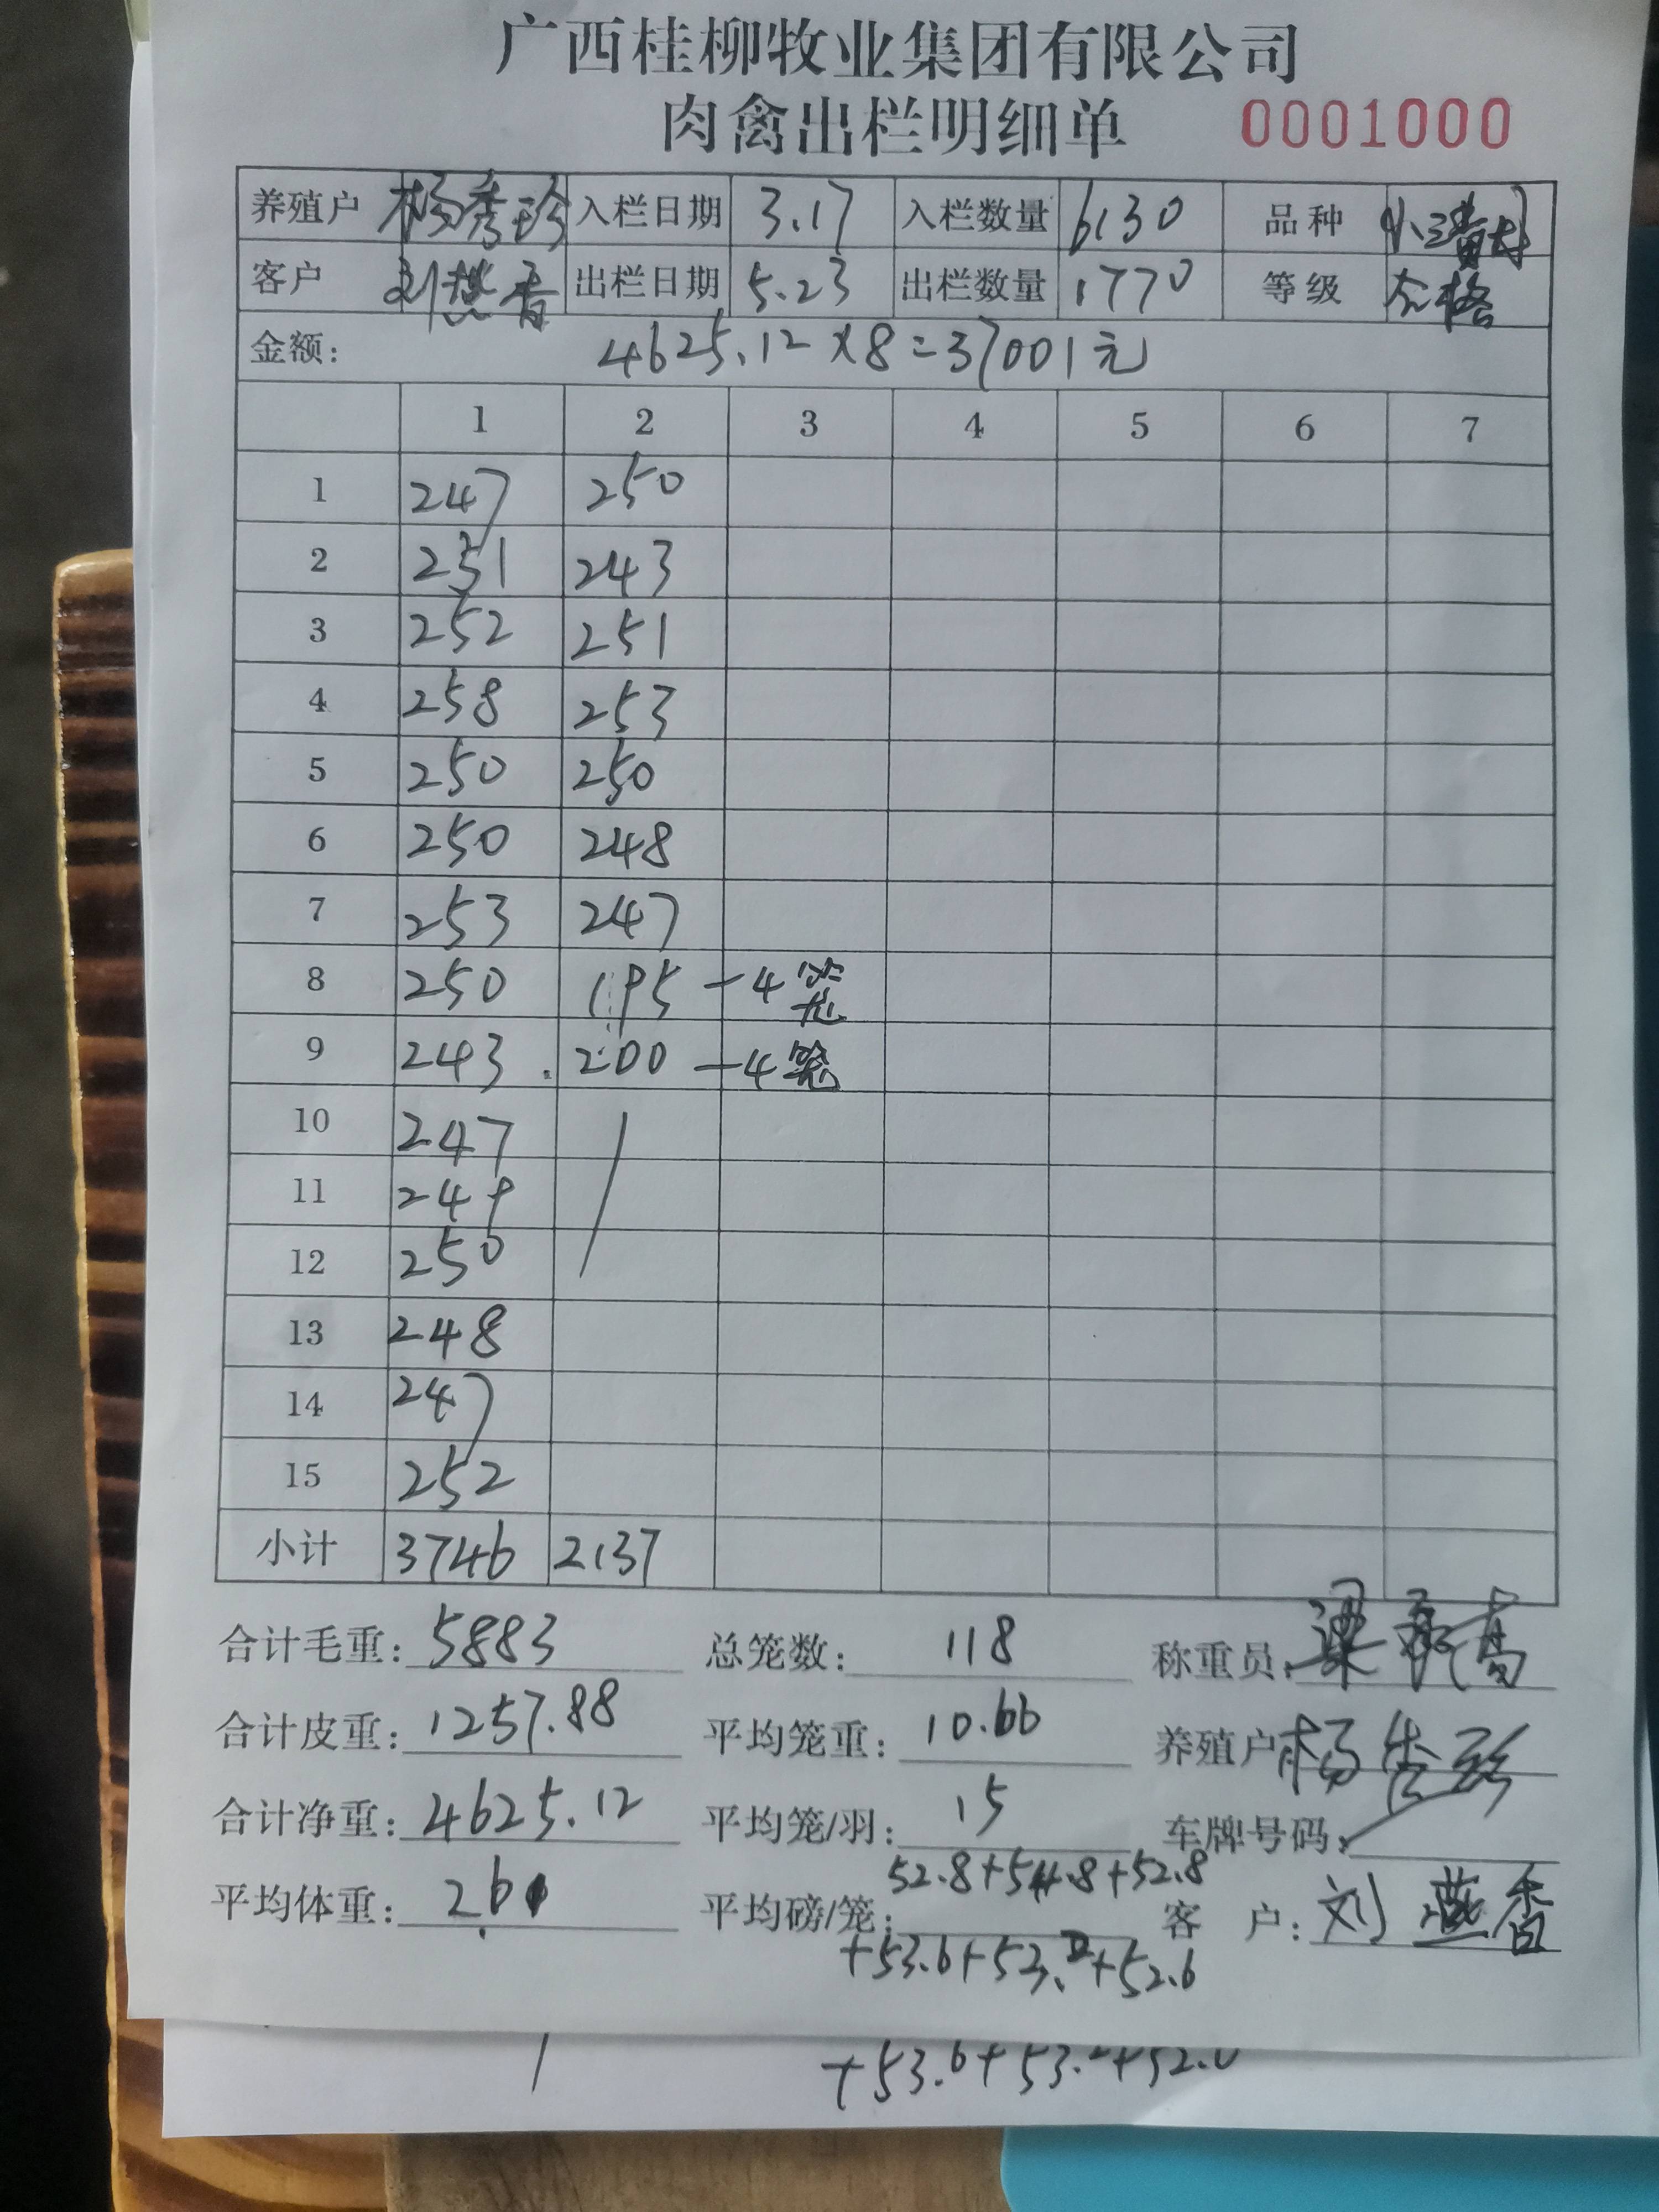 广西桂柳牧业集团有限公司
肉禽出栏明细单 0001000
养殖户 杨秀珍 入栏日期 3.17 入栏数量 6130 品种
客户 刘燕香 出栏日期 5.23 出栏数量 1770 等级 合格
金额: 4625.12×8=37001元
1 2 3 4 5 6 7
1 247 250
2 251 243
3 252 251
4 258 253
5 250 250
6 250 248
7 253 247
8 250 195 -4笼
9 243 200 -4笼
10 247
11 249
12 250
13 248
14 247
15 252
小计 3746 2137
合计毛重: 5883 总笼数: 118 称重员:
合计皮重: 1257.88 平均笼重: 10.66 养殖户
合计净重: 4625.12 平均笼/羽: 15 车牌号码:
52.8+54.8+52.8
平均体重: 2.61 平均磅/笼: 客 户: 刘燕香
+53.6+53.2+52.6
+53.6+53.2+52.6